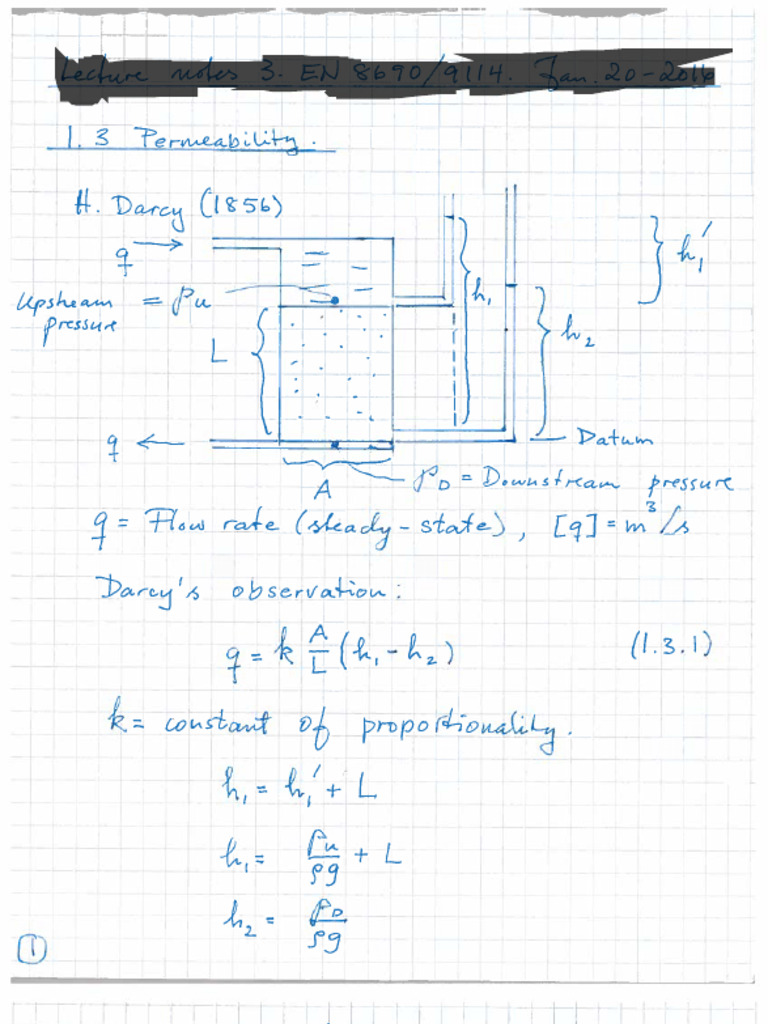 Lecture notes 3. EN 8690/9114. Jan. 20-2016
1.3 Permeability.
H. Darcy (1856)
q
h₁'
h₁
Upstream = Pu
pressure
h₂
L
q
Datum
A
P_D = Downstream pressure
q = Flow rate (steady-state), [q] = m³/s
Darcy's observation:
q = k A/L (h₁ - h₂) (1.3.1)
k = constant of proportionality.
h₁ = h₁' + L
h₁ = Pu/ρg + L
h₂ = P_D/ρg
1